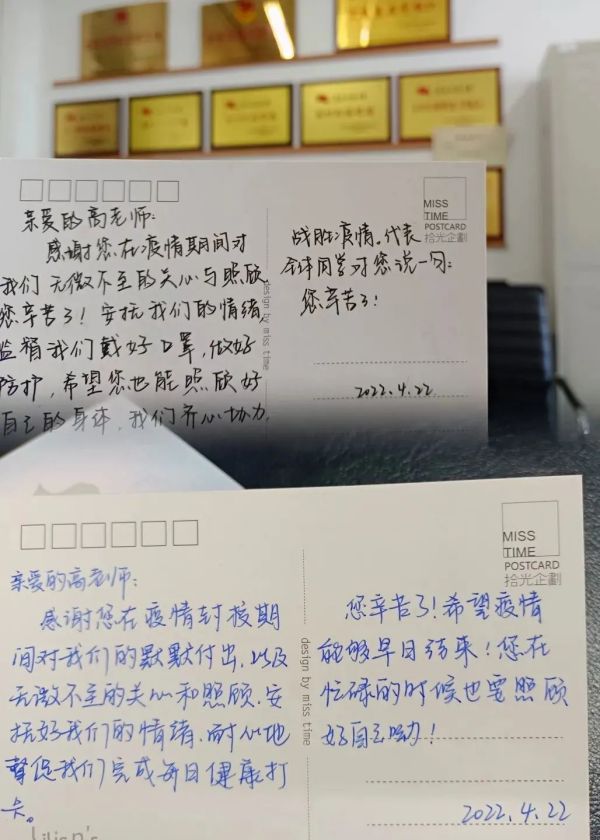 亲爱的高老师：
感谢您在疫情期间对
我们无微不至的关心与照顾，
您辛苦了！安抚我们的情绪，
监督我们戴好口罩，做好
防护，希望您也能照顾好
自己的身体，我们齐心协力，
MISS
TIME
POSTCARD
拾光企劃
战胜疫情。代表
全体同学对您说一句：
您辛苦了！
2022.4.22
design by miss time
亲爱的高老师：
感谢您在疫情封校期
间对我们的默默付出，以及
无微不至的关心和照顾，安
抚好我们的情绪，耐心地
督促我们完成每日健康打
卡。
Lilian's
MISS
TIME
POSTCARD
拾光企劃
您辛苦了！希望疫情
能够早日结束！您在
忙碌的时候也要照顾
好自己呦！
2022.4.22
design by miss time